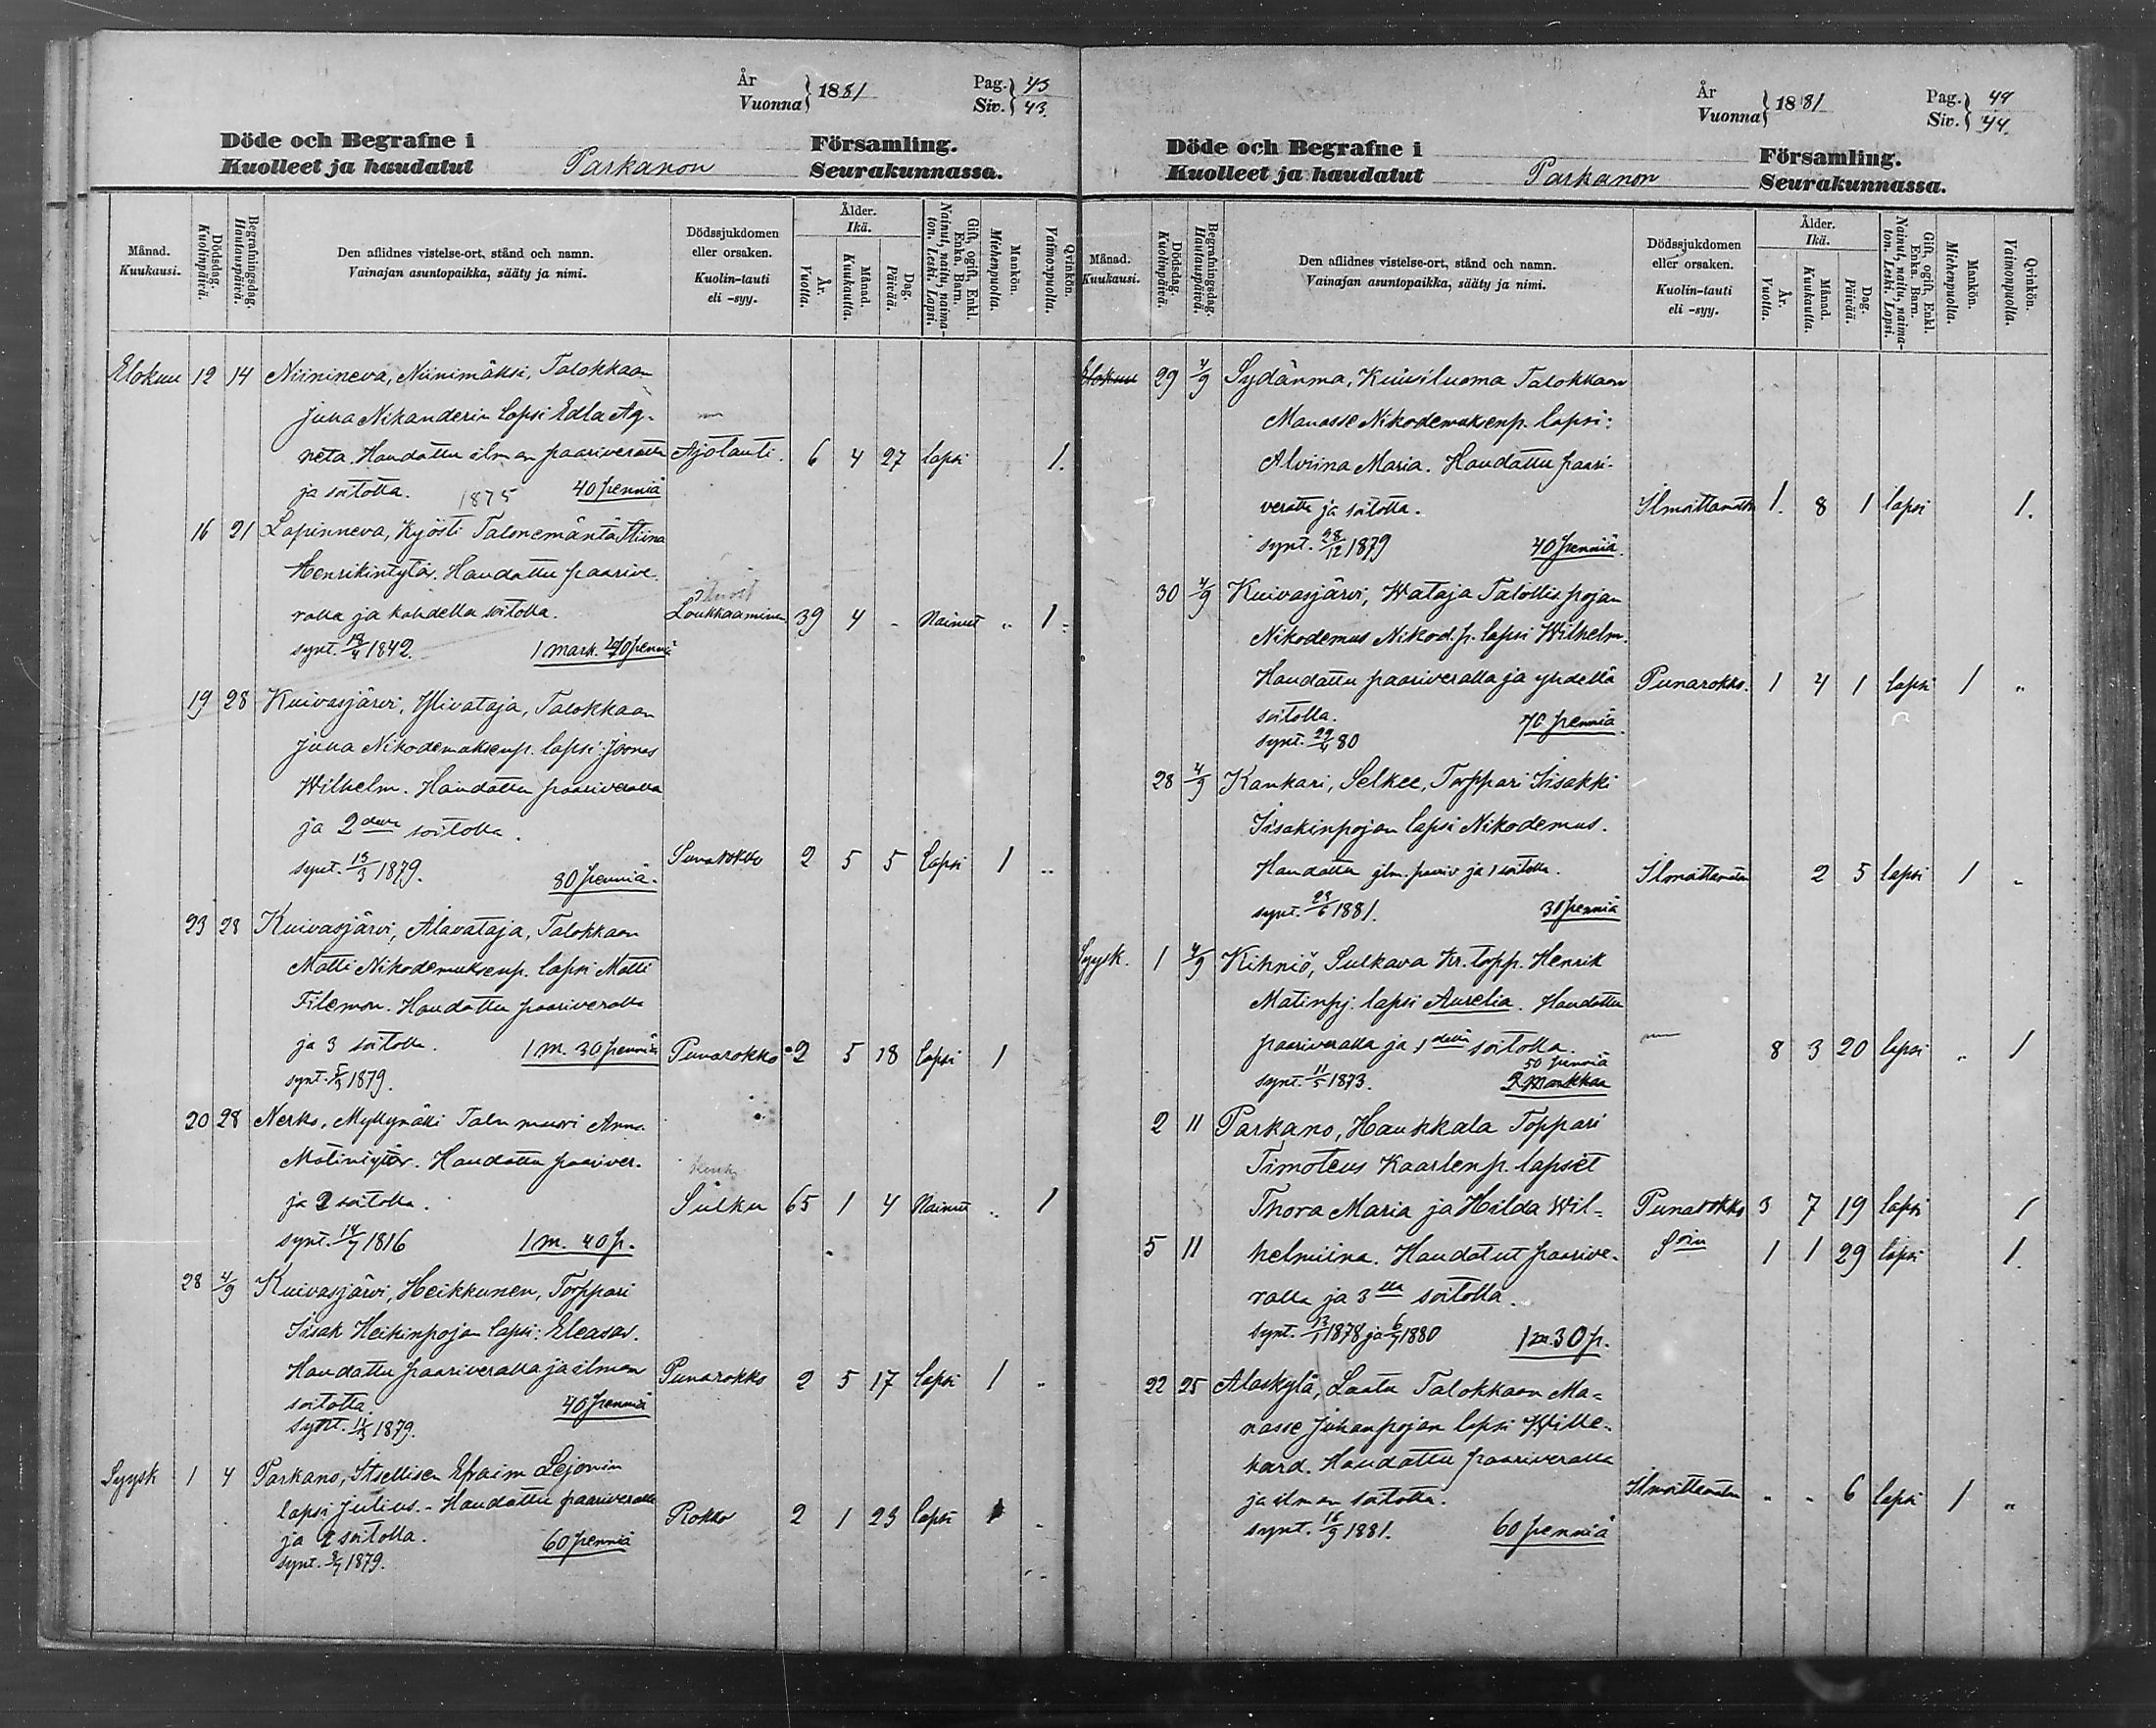 År
Vuonna } 1881
Pag. } 43
Siv. } 43.
Döde och Begrafne i Församling.
Kuolleet ja haudatut Parkanon Seurakunnassa.
Månad. Kuukausi.
Dödsdag. Kuolinpäivä.
Begrafningsdag. Hautauspäivä.
Den aflidnes vistelse-ort, stånd och namn.
Vainajan asuntopaikka, sääty ja nimi.
Dödssjukdomen eller orsaken.
Kuolin-tauti eli -syy.
Ålder. Ikä.
År. Vuotta.
Månad. Kuukautta.
Dag. Päivää.
Gift, ogift, Enkl. Enka. Barn. Nainut, naitu, naimaton. Leski. Lapsi.
Mankön. Miehenpuolta.
Qvinkön. Vaimonpuolta.
Elokuu 12 14 Niinineva, Niinimäksi, Talokkaan
Juha Nikanderin lapsi Edla Ag-
neta. Haudattu ilman paariveratta Ajotauti. 6 4 27 lapsi 1.
ja soitotta. 1875 40 penniä
16 21 Lapinneva, Kyösti Talonemäntä Stiina
Henrikintytär. Haudattu paarive-
ralla ja kahdella soitolla. Loukkaaminen 39 4 - Nainut " 1
synt. 18/4 1842. 1 mark. 20 penniä
19 28 Kuivasjärvi, Ylivataja, Talokkaan
Juha Nikodemuksenp. lapsi: Joonas
Wilhelm. Haudattu paariveralla
ja 2 della soitolla.
synt. 13/3 1879. 80 penniä. Punarokko 2 5 5 lapsi 1 "
23 28 Kuivasjärvi, Alavataja, Talokkaan
Matti Nikodemuksenp. lapsi Matti
Filemon. Haudattu paariveralla
ja 3 soitolla. 1 m. 30 penniä Punarokko 2 5 18 lapsi 1
synt. 5/3 1879.
20 28 Nerko, Myllymäki Talu muori Anna
Matintytär. Haudattu paariver.
ja 2 soitolla. Sulku 65 1 4 Nainut " 1
synt. 14/7 1816 1 m. 40 p.
28 4/9 Kuivasjärvi, Heikkunen, Torppari
Iisak Heikinpojan lapsi: Eleasar.
Haudattu paariveralla ja ilman Punarokko 2 5 17 lapsi 1 "
soitotta. 40 penniä
synt. 11/3 1879.
Syysk 1 4 Parkano, Itsellisen Efraim Lejonin
lapsi Julius. - Haudattu paariveralla Rokko 2 1 23 lapsi 1 "
ja 2 soitolla. 60 penniä
synt. 8/7 1879.
År
Vuonna } 1881
Pag. } 44
Siv. } 44.
Döde och Begrafne i Församling.
Kuolleet ja haudatut Parkanon Seurakunnassa.
Månad. Kuukausi.
Dödsdag. Kuolinpäivä.
Begrafningsdag. Hautauspäivä.
Den aflidnes vistelse-ort, stånd och namn.
Vainajan asuntopaikka, sääty ja nimi.
Dödssjukdomen eller orsaken.
Kuolin-tauti eli -syy.
Ålder. Ikä.
År. Vuotta.
Månad. Kuukautta.
Dag. Päivää.
Gift, ogift, Enkl. Enka. Barn. Nainut, naitu, naimaton. Leski. Lapsi.
Mankön. Miehenpuolta.
Qvinkön. Vaimonpuolta.
Elokuu 29 4/9 Sydänma, Kuusiluoma Talokkaan
Manasse Nikodemuksenp. lapsi:
Alviina Maria. Haudattu paari-
veratta ja soitotta. Ilmoittamatta 1. 8 1 lapsi 1.
synt. 28/12 1879 40 penniä.
30 4/9 Kuivasjärvi, Wataja Talollis pojan
Nikodemus Nikod. p. lapsi Wilhelm.
Haudattu paariveralla ja yhdellä Punarokko. 1 4 1 lapsi 1 "
soitolla. 70 penniä.
synt. 29/4 80
28 4/9 Kankari, Selkee, Torppari Iisakki
Iisakinpojan lapsi Nikodemus.
Haudattu ilm. paariv ja 1 soitolla. Ilmoittamatta 2 5 lapsi 1 "
synt. 23/6 1881. 30 penniä
Syysk. 1 4/9 Kihniö, Sulkava Kr. topp. Henrik
Matinpj. lapsi Aurelia. Haudattu
paariveralla ja 1 dellä soitolla. 8 3 20 lapsi " 1
50 penniä
synt. 11/5 1873. 2 markkaa
2 11 Parkano, Haukkala Toppari
Timoteus Kaarlenp. lapset
Thora Maria ja Hilda Wil- Punarokko 3 7 19 lapsi 1
5 11 helmiina. Haudatut paarive- 1 1 29 lapsi 1.
ralla ja 3 lla soitolla.
synt. 13/1 1878 ja 6/7 1880 1 m. 30 p.
22 25 Alaskylä, Laatu Talokkaan Ma-
nasse Juhanpojan lapsi Wille-
hard. Haudattu paariveralla
ja ilman soitotta. Ilmoittamatta " " 6 lapsi 1 "
synt. 16/9 1881. 60 penniä